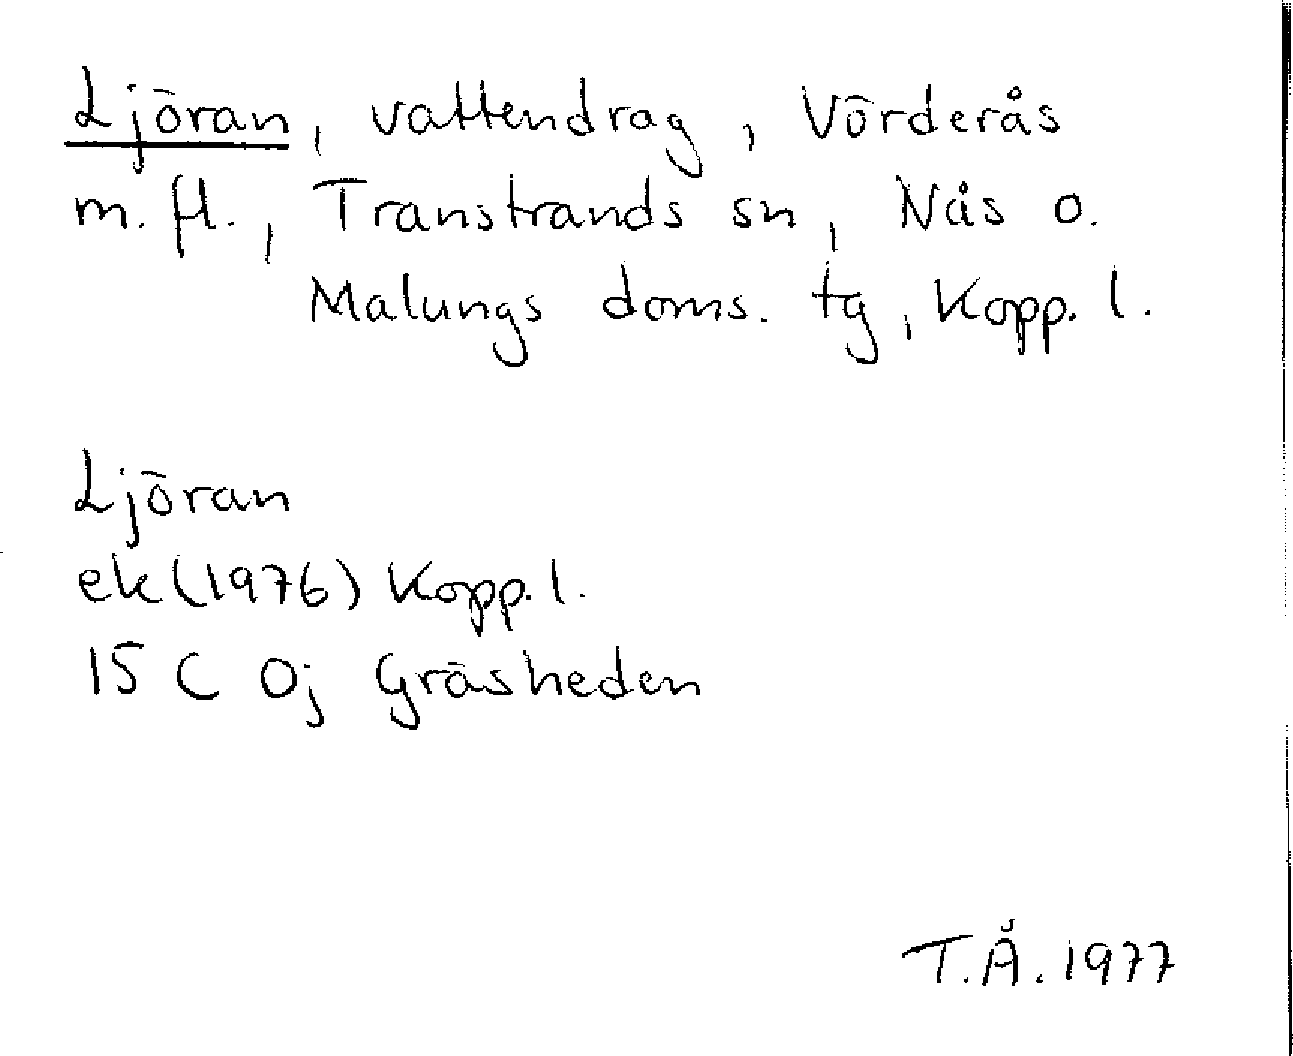 Ljöran, vattendrag, Vörderås
m.fl., Transtrands sn, Nås o.
Malungs doms. tg, Kopp. l.
Ljöran
ek (1976) Kopp. l.
15 C 0j Gräsheden
T.Å. 1977